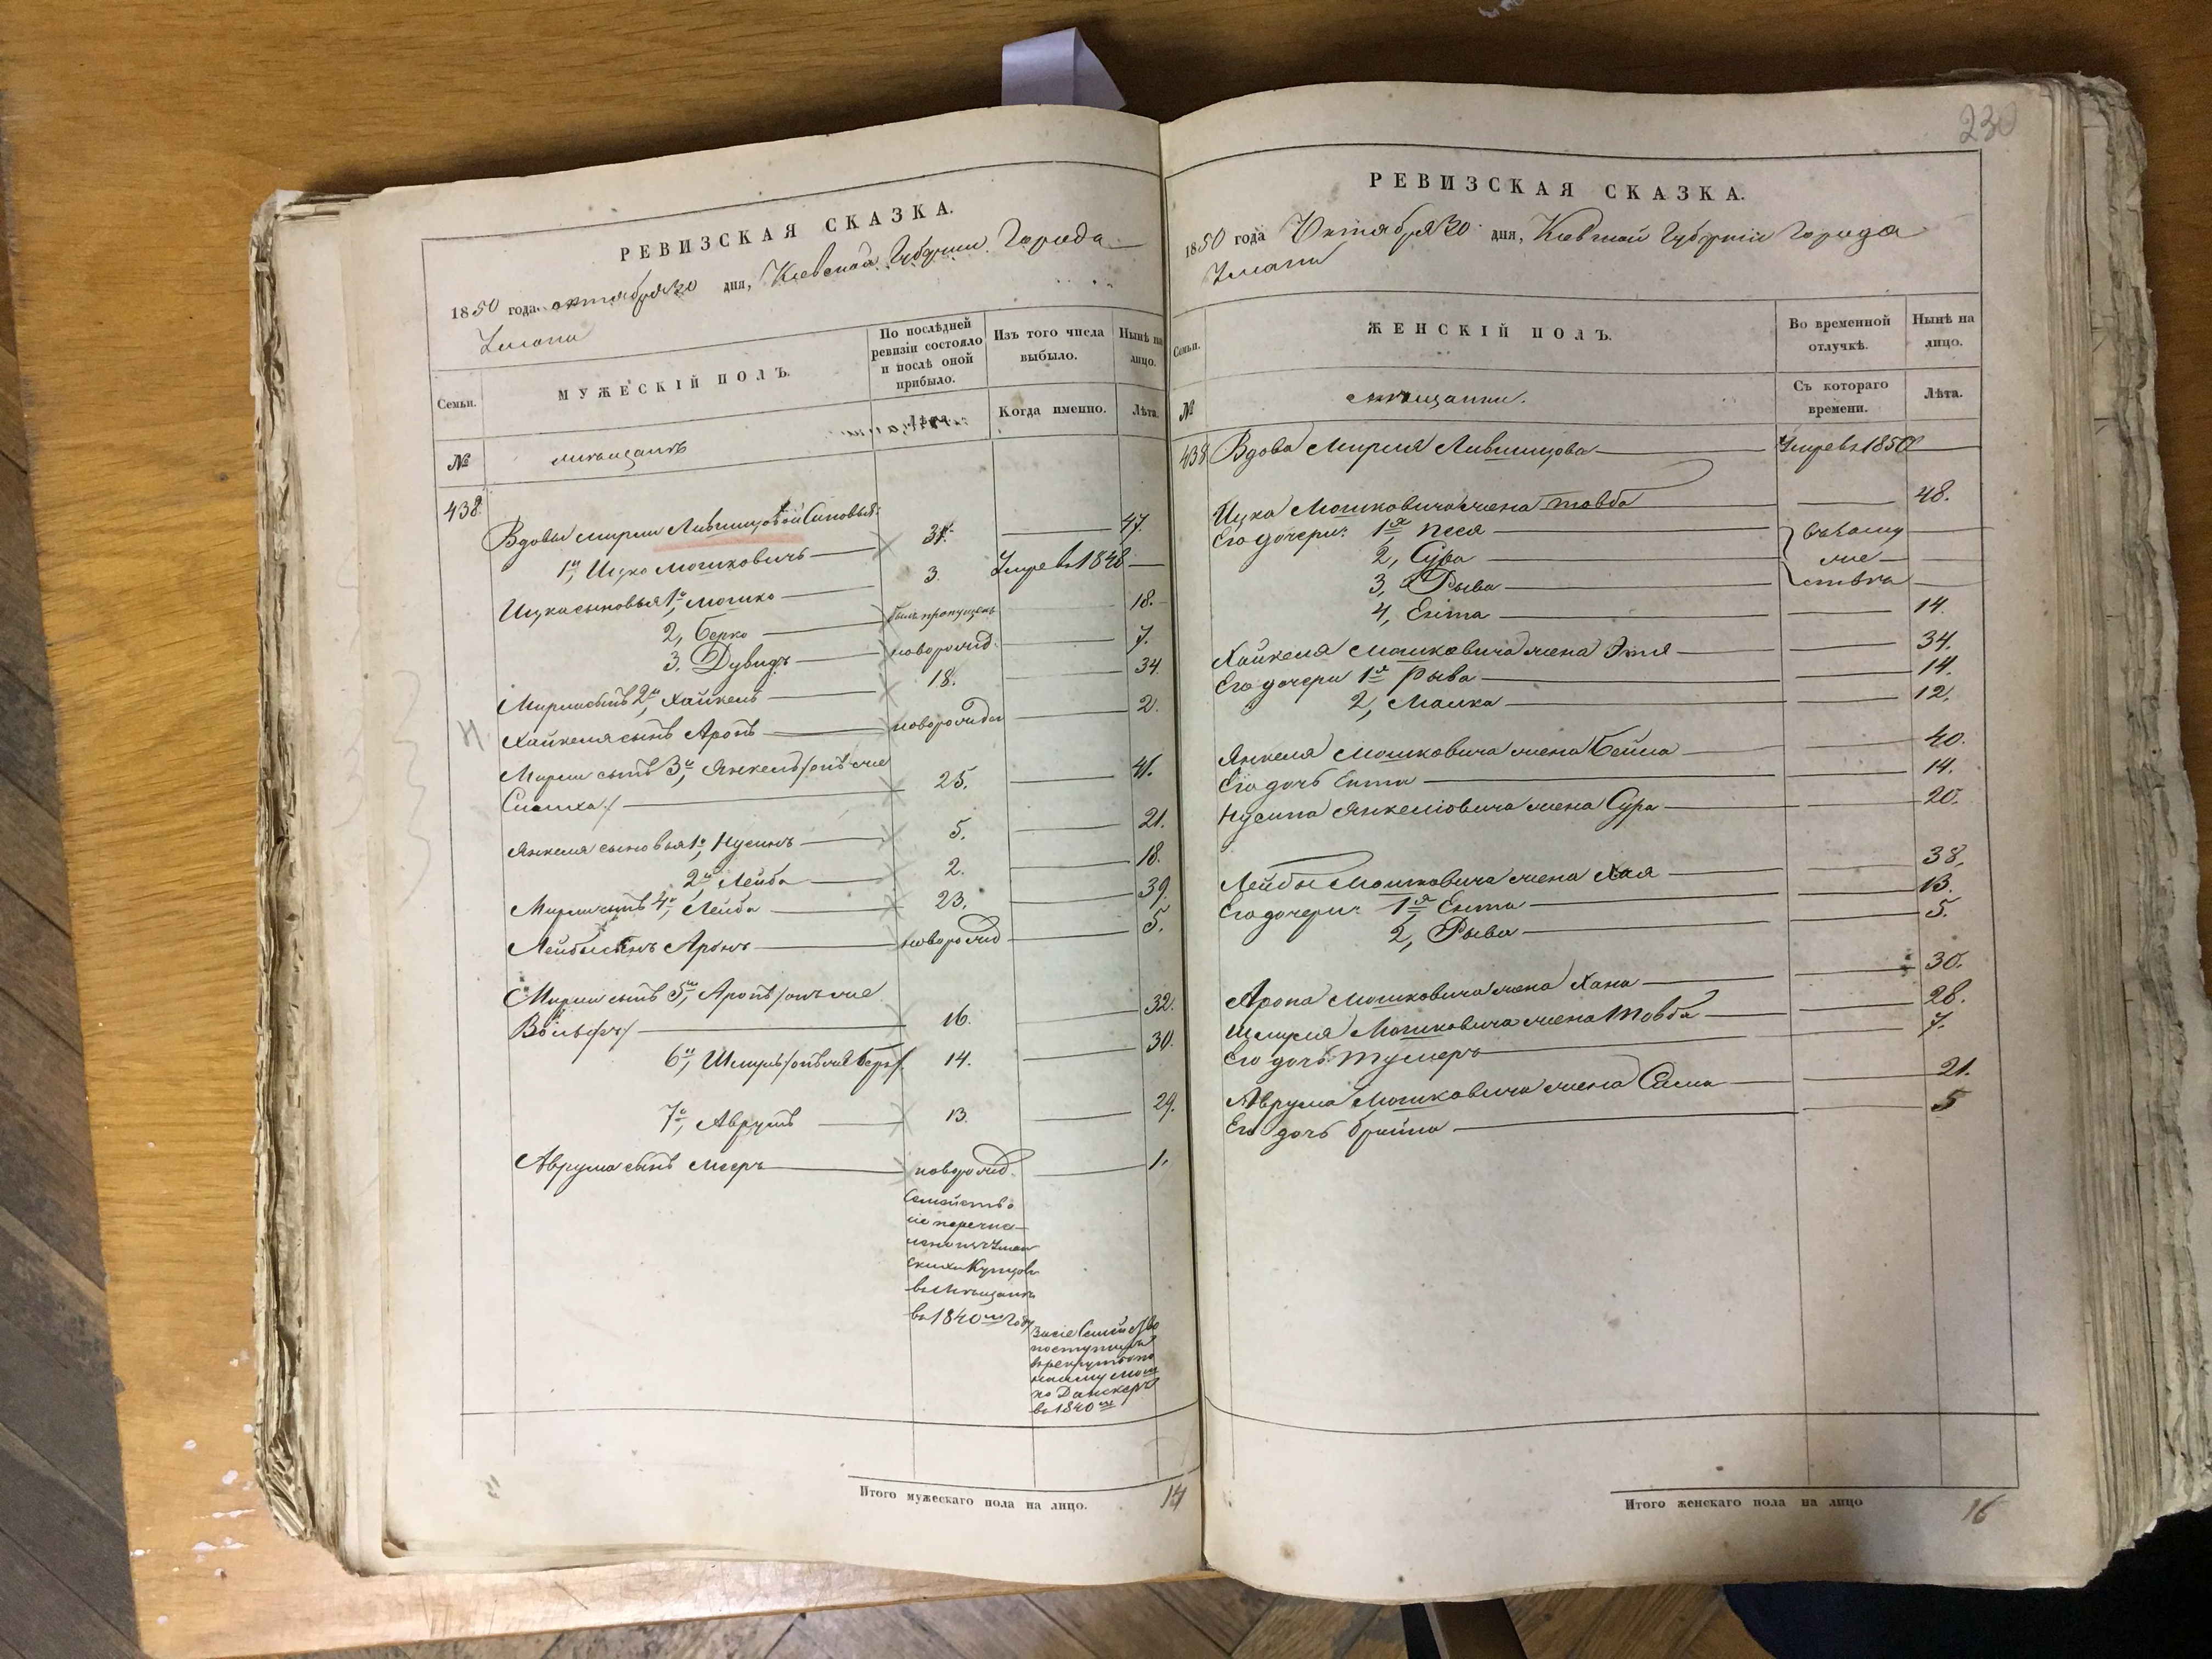 РЕВИЗСКАЯ СКАЗКА.
1850 года октября 30 дня, Киевской Губернии Города
Умани
Семьи.
МУЖЕСКІЙ ПОЛЪ.
По послѣдней ревизіи состояло и послѣ оной прибыло.
Изъ того числа выбыло.
Нынѣ на лицо.
Лѣта.
Когда именно.
Лѣта.
№
мѣщанъ
438.
Вдовы Мирли Лившицовой Сыновья:
1й, Ицко Мошковичъ 31. 47.
Ицка сыновья 1й, Мошко 3. Умре въ 1848
2, Берко былъ пропущенъ 18.
3. Дувидъ новорожд. 7.
Мирли сынъ 2й, Хайкель 18. 34
Хайкеля сынъ Аронъ новорожден 2.
Мирли сынъ 3й, Янкель /онъ же
Симха/ 25. 41.
Янкеля сыновья 1й, Нусинъ 5. 21.
2й Лейба 2. 18.
Мирли сынъ 4й, Лейба 23. 39.
Лейбы сынъ Аронъ новорожд 5.
Мирли сынъ 5й, Аронъ /онъ же
Вольфъ/ 16. 32.
6й, Шмуль /онъ же Беръ/. 14. 30.
7й, Аврумъ 13. 29.
Аврума сынъ Мееръ новорожд. 1.
Семейство
сіе перечис-
лено изъ Уман
скихъ Купцовъ
въ Мѣщане
въ 1840мъ году
За сіе Семейство
поступилъ
въ рекруты по
найму Мош
ко Данскеръ
въ 1840мъ
Итого мужескаго пола на лицо. 14
230
РЕВИЗСКАЯ СКАЗКА.
1850 года Октября 30 дня, Кіевской Губерніи Города
Умани
Семьи.
ЖЕНСКІЙ ПОЛЪ.
Во временной отлучкѣ.
Нынѣ на лицо.
Съ котораго времени.
Лѣта.
№
мѣщанки.
438 Вдова Мирля Лившицова Умре въ 1850
Ицка Мошковича жена Товба 48.
Его дочери: 1я Песя
2, Сура
3, Рыва
въ замужествѣ
4, Ента 14.
Хайкеля Мошковича жена Этля 34.
Его дочери 1я Рыва 14.
2, Малка 12.
Янкеля Мошковича жена Бейла 40.
Его дочь Ента 14.
Нусина Янкеліовича жена Сура 20.
Лейбы Мошковича жена Хая 38.
Его дочери: 1я Ента 13.
2, Рыва 5.
Арона Мошковича жена Хана 30.
Шмуля Мошковича жена Товба 28.
Его дочь 7.
Аврума Мошковича жена Сима 21.
Его дочь Брайна 5
Итого женскаго пола на лицо 16